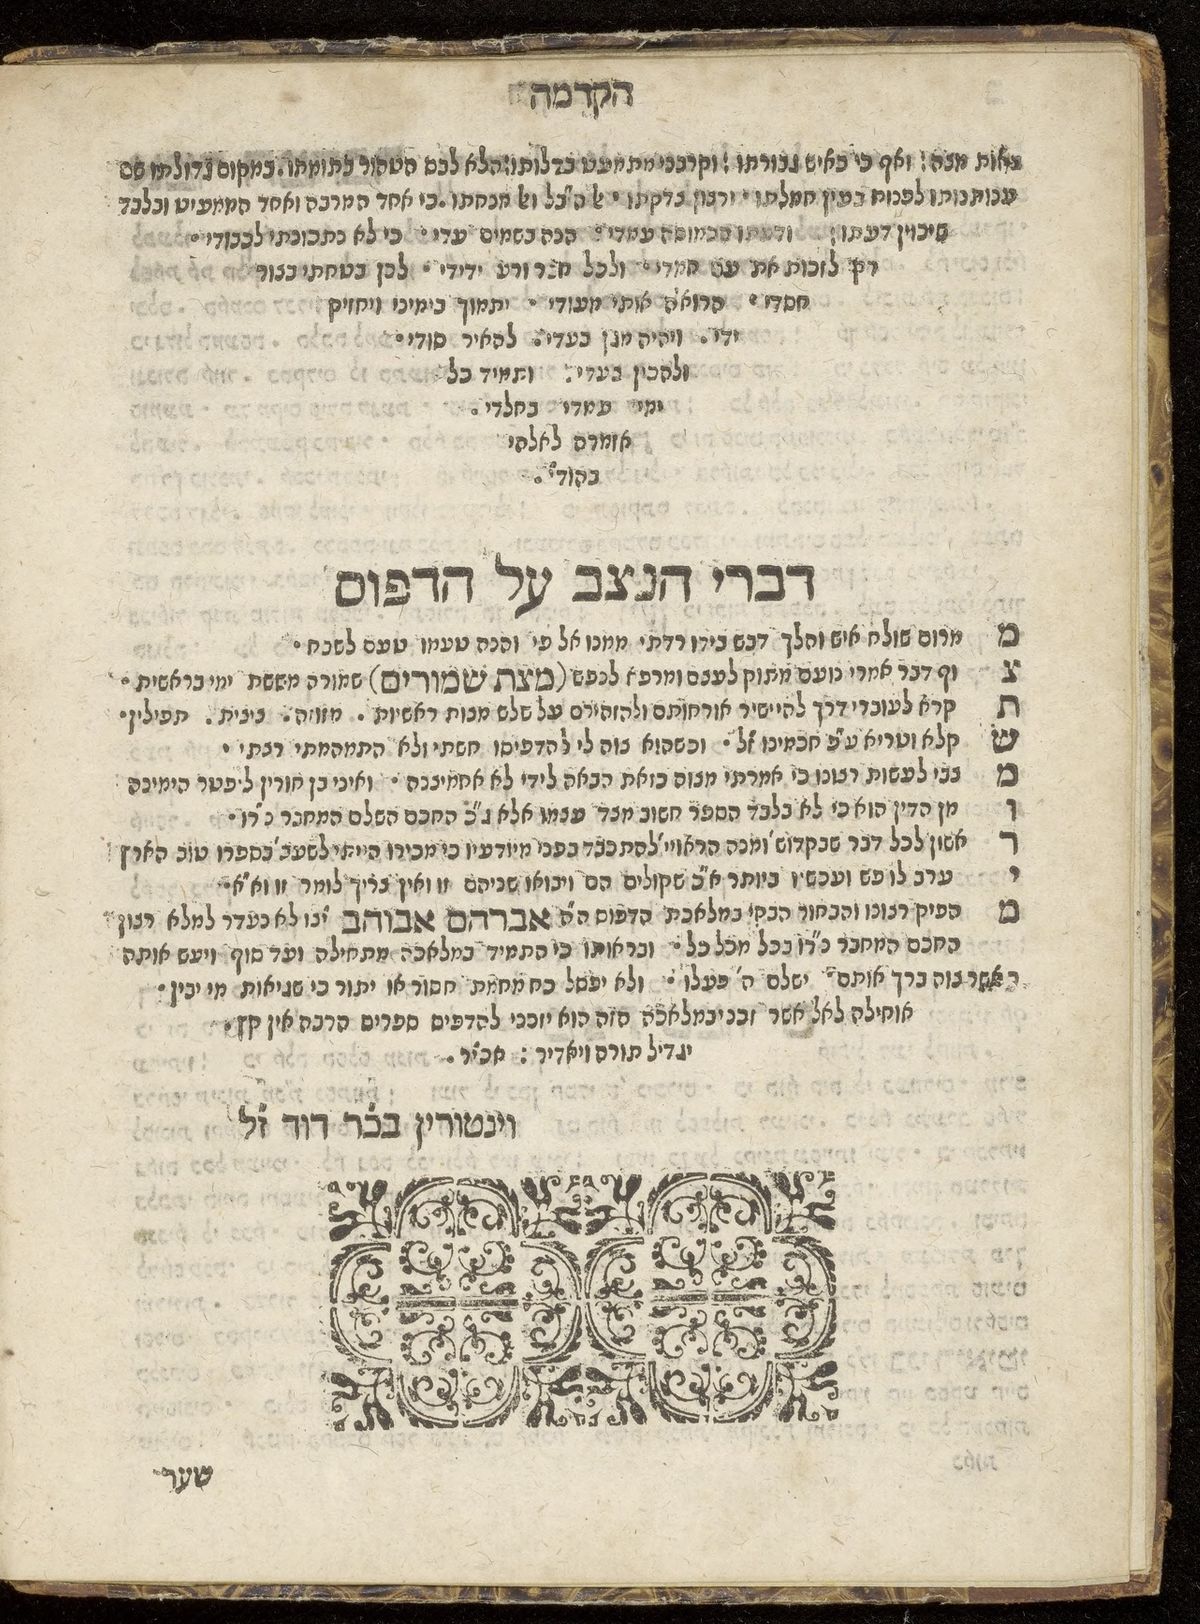 הקדמה
צאות מצה! ואף כי כאיש גבורתו! וקרבני מתמעט בדלותו! הלא לבם הטהור בתומתו. במקום גדולתו שם
ענותנותו לפנות בעין חמלתו· ורצון צדקתו· כי אחד המרבה ואחד הממעיט ובלבד
שיכוין דעתו! עמדי· הנה בשמים עדי· כי לא כתבתי לכבודי·
רק לזכות את עם חמדי· ולכל חבר ורע ידידי· לכן בטחתי בצור
חסדי· הרואה אותי מעודי· יתמוך בימיני ויחזיק
ידי. ויהיה מגן בעדי. להאיר סודי.
ולהכין צעדי: ותמיד כל
ימי עמדי בחלדי.
אומרה לאלהי
בהודי.
דברי הנצב על הדפוס
מ מרום שולח איש והלך דבש בידו רדתי ממנו אל פי והנה טעמו טעם לשבח·
צ וף דבר אמרי נועם מתוק לעצם ומרפא לנפש (מצת שמורים) שמורה מששת ימי בראשית·
ת קרא לעוברי דרך להיישיר אורחותם ולהזהירם על שלש מצות ראשיות. מזוזה. ציצית. תפילין·
ש קלא וטריא ע"פ חכמינו ז"ל· וכשהוא צוה לי להדפיסו חשתי ולא התמהמתי רצתי·
מ צפי לעשות רצונו כי אמרתי מצוה כזאת הבאה לידי לא אחמיצנה· ואיני בן חורין ליפטר הימינה
ו מן הדין הוא כי לא בלבד הספר חשוב מצד עצמו אלא ג"כ החכם השלם המחבר נ"רו·
ר אשון לכל דבר שבקדוש' ומנה הראויי' להתכבד בפני מיודעיו כי מכירו הייתי לשעב' בספרו טוב הארץ
י ערב לו נפש ועכשיו ביותר א"כ שקולים הם ויבואו שניהם זו ואין צריך לומר זו וא"א·
מ הפיק רצונו והבחור הבקי במלאכת הדפוס ה"ה אברהם אבוהב יצו לא נעדר למלא רצון
החכם המחבר נ"רו בכל מכל כל· ובראותו כי התמיד במלאכה מתחילה ועד סוף ויעש אותה
כאשר צוה ברך אותם· ישלם ה' פעלו· ולא יפסל כח מחמת חסור או יתור כי שגיאות מי יבין·
אוחילה לאל אשר זכני במלאכה הזה הוא יזכני להדפים ספרים הרבה אין קץ.
יגדיל תורה ויאדיר: אכי"ר.
וינטורין בכ"ר דוד ז"ל
שער